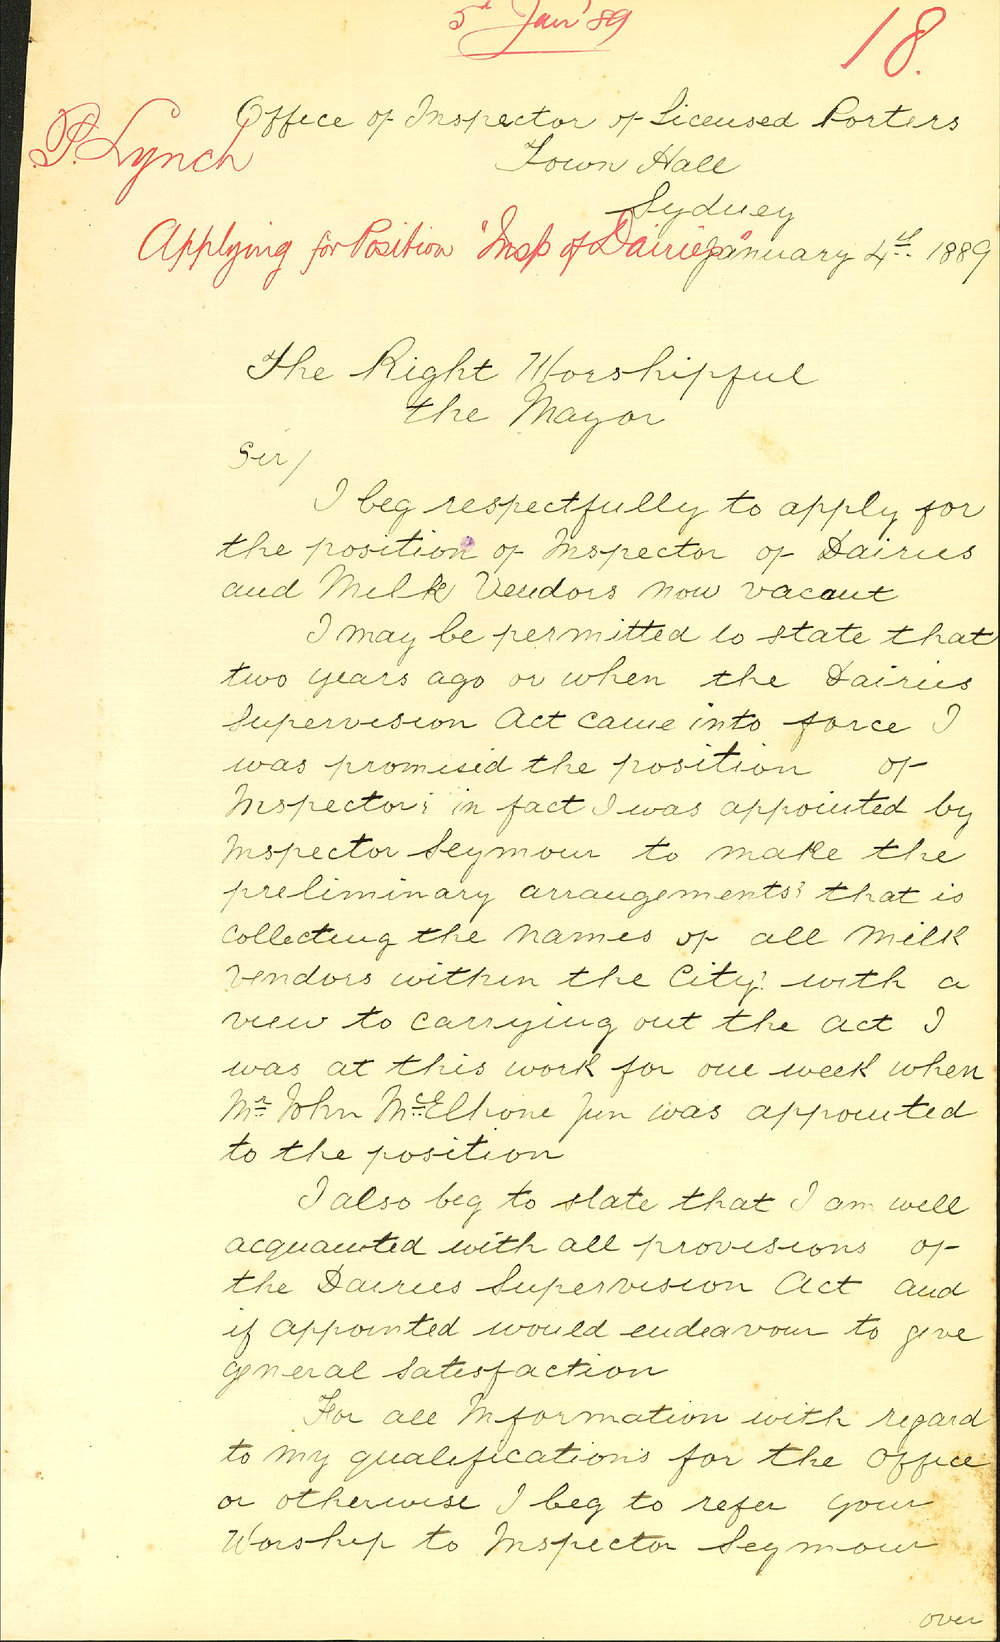 5th Jan' 89
18.
P. Lynch
Office of Inspector of Licensed Porters
Town Hall
Sydney
Applying for Position "Insp of Dairies"
January 4th 1889
The Right Worshipful
the Mayor
Sir/
I beg respectfully to apply for
the position of Inspector of Dairies
and Milk Vendors now vacant
I may be permitted to state that
two years ago or when the Dairies
Supervision Act came into force I
was promised the position of
Inspector; in fact I was appointed by
Inspector Seymour to make the
preliminary arrangements; that is
collecting the names of all Milk
Vendors within the City; with a
view to carrying out the Act I
was at this work for one week when
Mr John McElhone Jun was appointed
to the position
I also beg to state that I am well
acquainted with all provisions of
the Dairies Supervision Act and
if appointed would endeavour to give
general satisfaction
For all Information with regard
to my qualifications for the Office
or otherwise I beg to refer your
Worship to Inspector Seymour
over